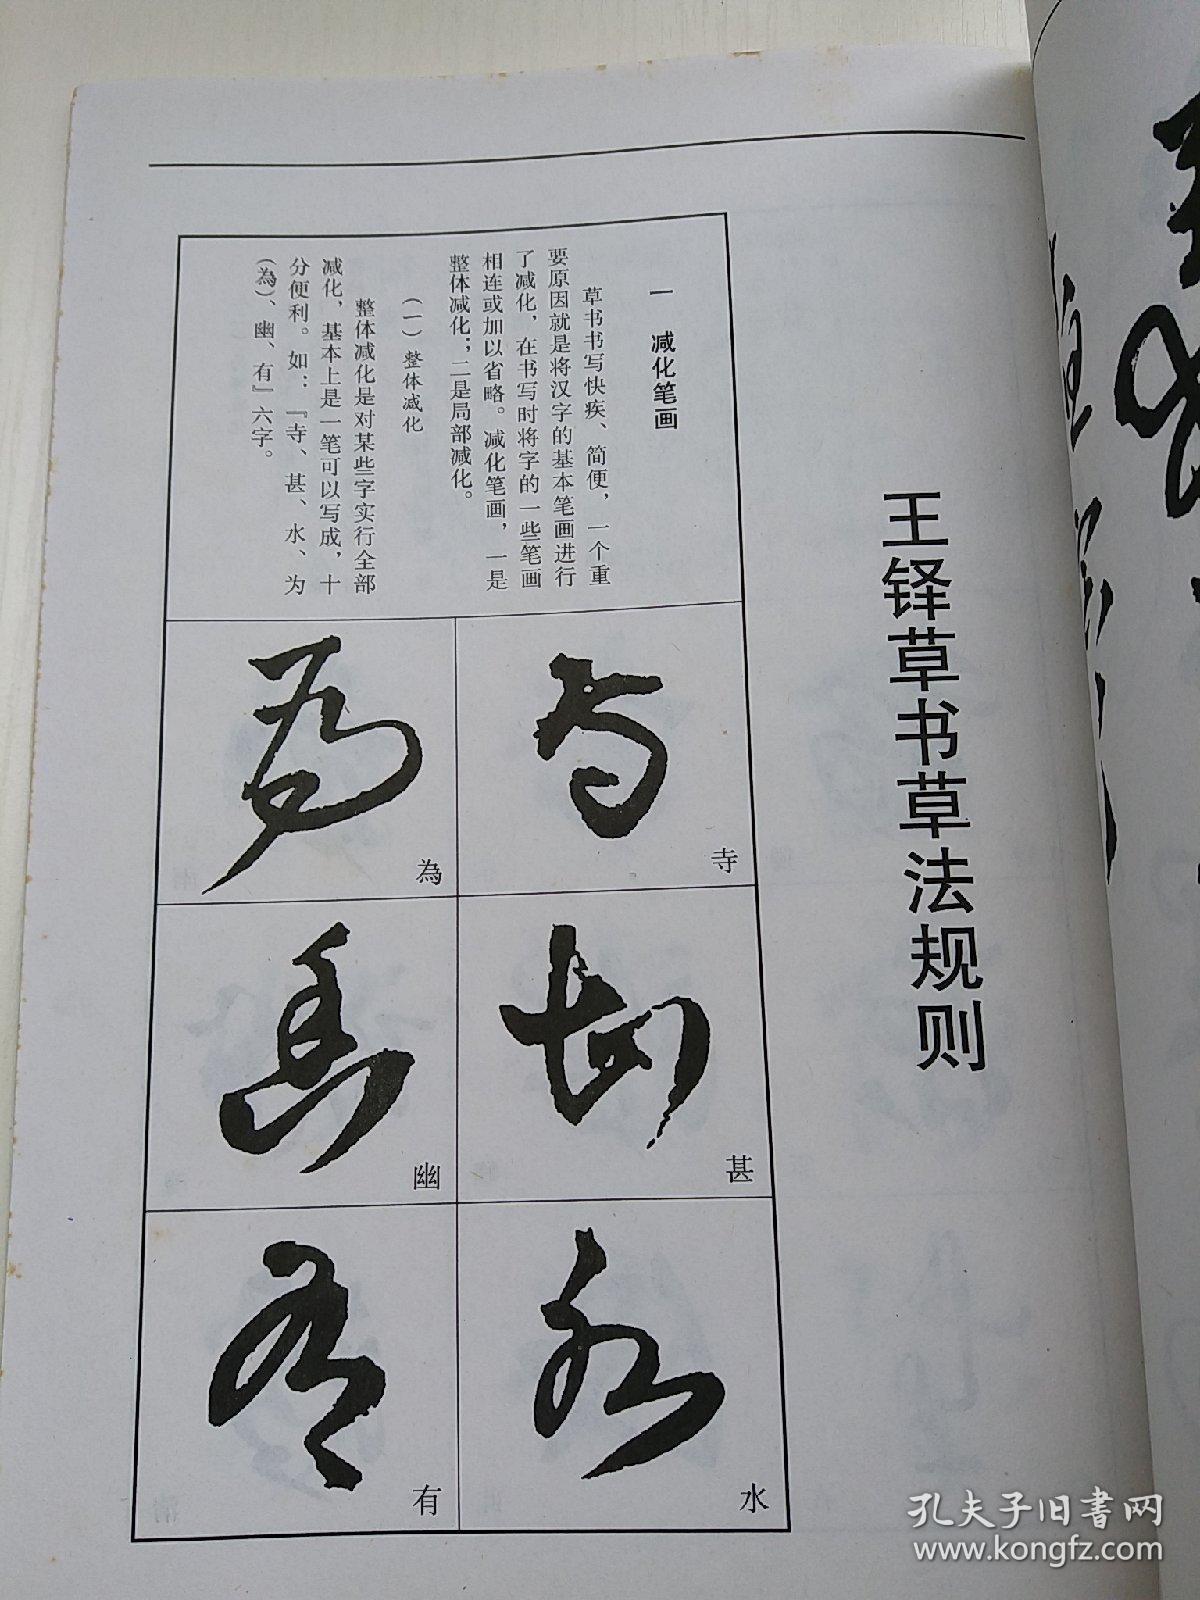 王铎草书草法规则
一　减化笔画
草书书写快疾、简便，一个重
要原因就是将汉字的基本笔画进行
了减化，在书写时将字的一些笔画
相连或加以省略。减化笔画，一是
整体减化；二是局部减化。
（一）整体减化
整体减化是对某些字实行全部
减化，基本上是一笔可以写成，十
分便利。如：『寺、甚、水、为
（為）、幽、有』六字。
寺
甚
水
為
幽
有
孔夫子旧书网
www.kongfz.com